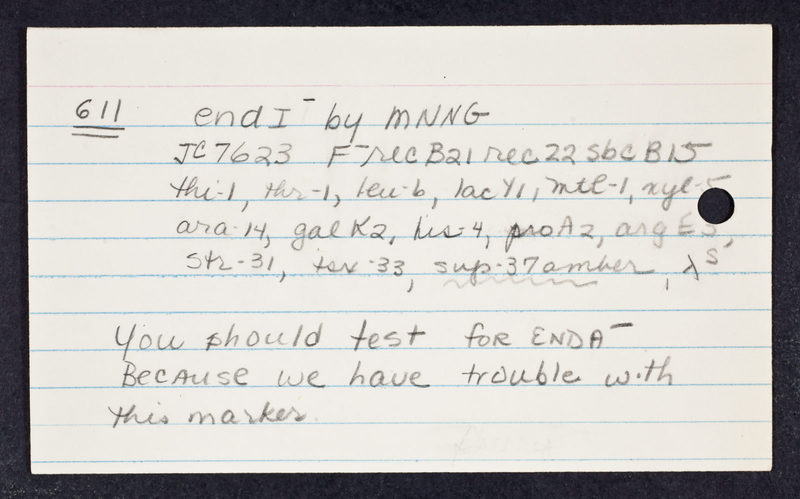 611 endI⁻ by MNNG
JC7623 F⁻ recB21 rec22 sbcB15
thi-1, thr-1, leu-6, lacY1, mtl-1, xyl-5
ara-14, galK2, his-4, proA2, argE3,
str-31, tsx-33, sup-37amber, λˢ
You should test for ENDA⁻
Because we have trouble with
this marker.